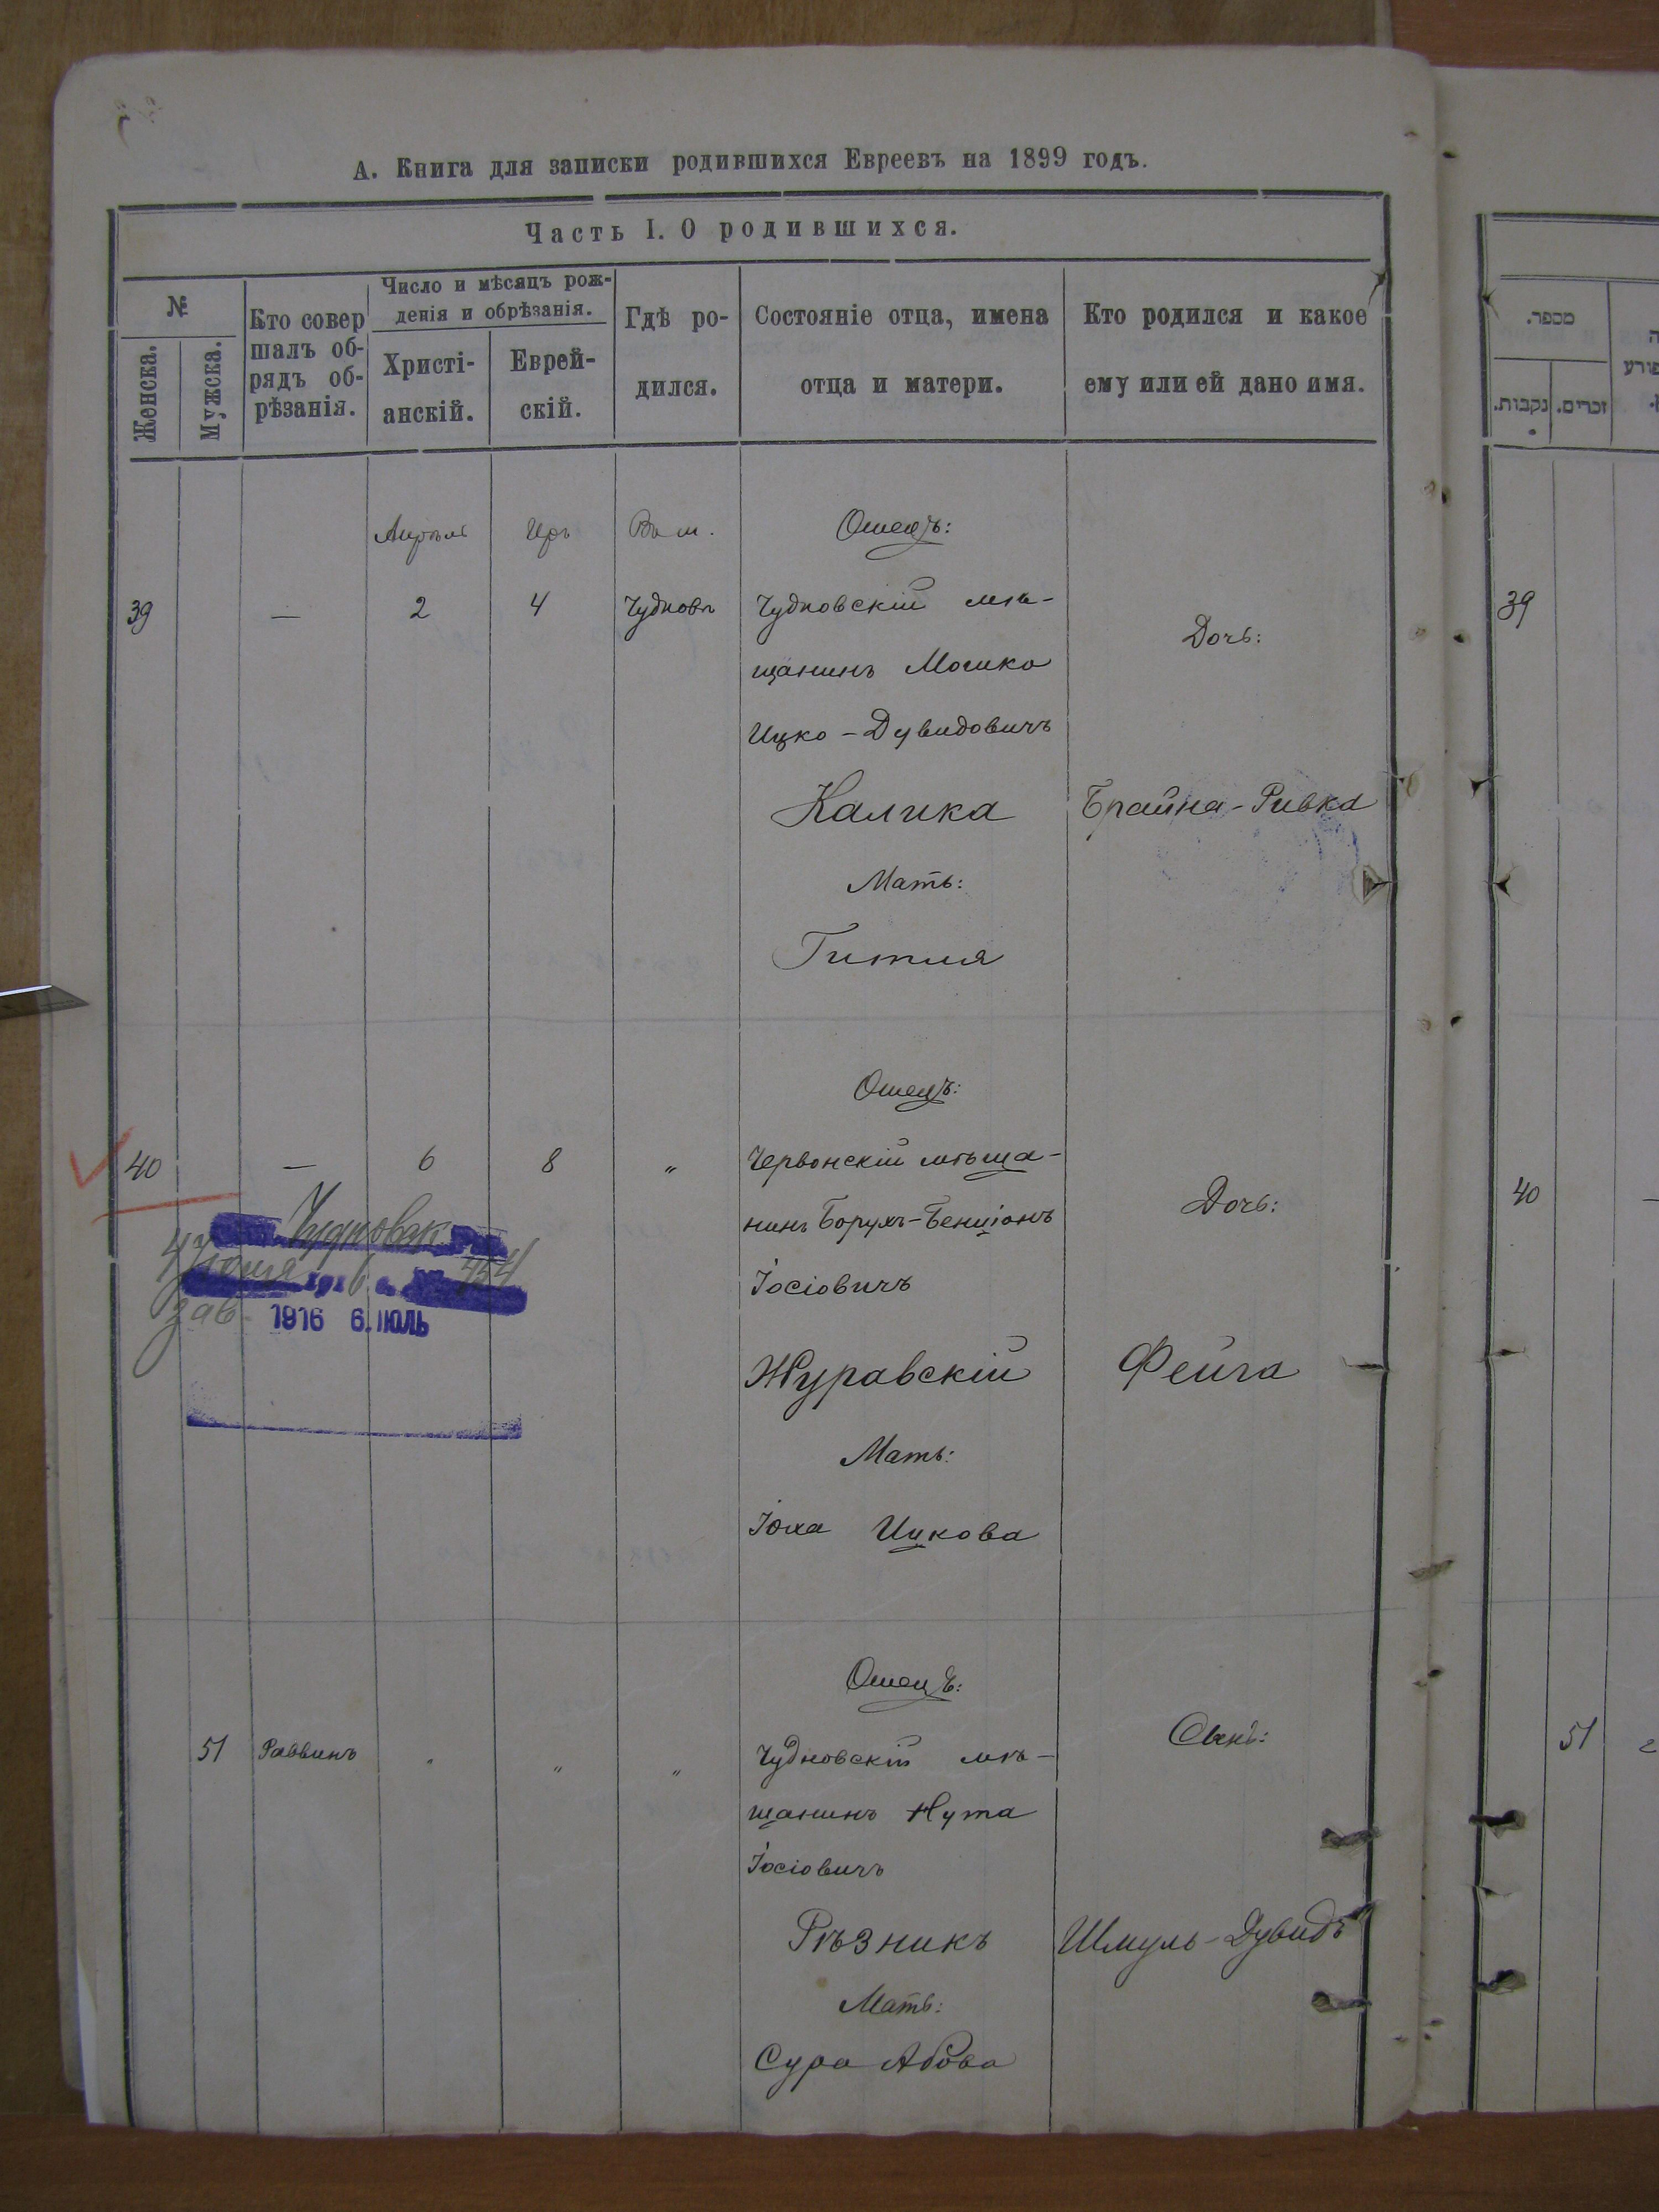 А. Книга для записки родившихся Евреевъ на 1899 годъ.
Часть I. О родившихся.
№
Женска.
Мужска.
Кто совер
шалъ об-
рядъ об-
рѣзанія.
Число и мѣсяцъ рож-
денія и обрѣзанія.
Христі-
анскій.
Еврей-
скій.
Гдѣ ро-
дился.
Состояніе отца, имена
отца и матери.
Кто родился и какое
ему или ей дано имя.
Апрѣль Иръ Въ м. Отецъ:
39 — 2 4 Чудновъ Чудновскій мѣ-
щанинъ Мошко
Ицко-Дувидовичъ
Калика
Мать:
Гитля
Дочь:
Брайна-Ривка
Отецъ:
40 — 6 8 „ Червонскій мѣща-
нинъ Борухъ-Бенціонъ
Іосіовичъ
Журавскій
Мать:
Іоха Ицкова
Дочь:
Фейга
Чудновск
454
зав.
1916 6. ІЮЛЬ
Отецъ:
51 Раввинъ „ „ „ Чудновскій мѣ-
щанинъ Нута
Іосіовичъ
Рѣзникъ
Мать:
Сура Абова
Сынъ:
Шмуль-Дувидъ
מספר.
נקבות.
זכרים.
39
40
51